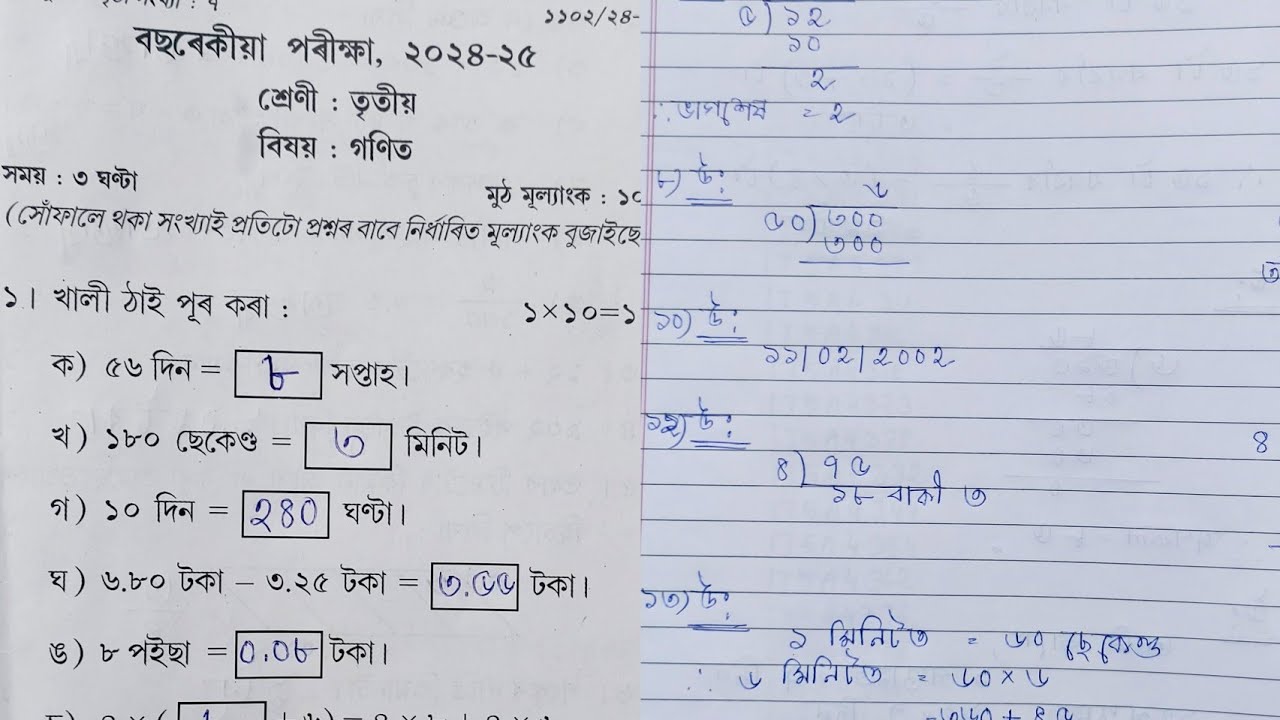 ১১০২/২৪-
বছৰেকীয়া পৰীক্ষা, ২০২৪-২৫
শ্ৰেণী : তৃতীয়
বিষয় : গণিত
সময় : ৩ ঘণ্টা
মুঠ মূল্যাংক : ১০
(সোঁফালে থকা সংখ্যাই প্ৰতিটো প্ৰশ্নৰ বাবে নিৰ্ধাৰিত মূল্যাংক বুজাইছে
১। খালী ঠাই পূৰ কৰা : ১×১০=১
ক) ৫৬ দিন = ৮ সপ্তাহ।
খ) ১৮০ ছেকেণ্ড = ৩ মিনিট।
গ) ১০ দিন = ২৪০ ঘণ্টা।
ঘ) ৬.৮০ টকা – ৩.২৫ টকা = ৩.৫৫ টকা।
ঙ) ৮ পইছা = ০.০৮ টকা।
৫) ১২
১০
২
∴ ভাগশেষ = ২
৮) উ:
৬
৫০) ৩০০
৩০০
১০) উ:
১১/০২/২০০২
১২) উ:
৪) ৭৫
১৮ বাকী ৩
৪
১৩) উ:
১ মিনিটত = ৬০ ছেকেণ্ড
∴ ৬ মিনিটত = ৬০ × ৬